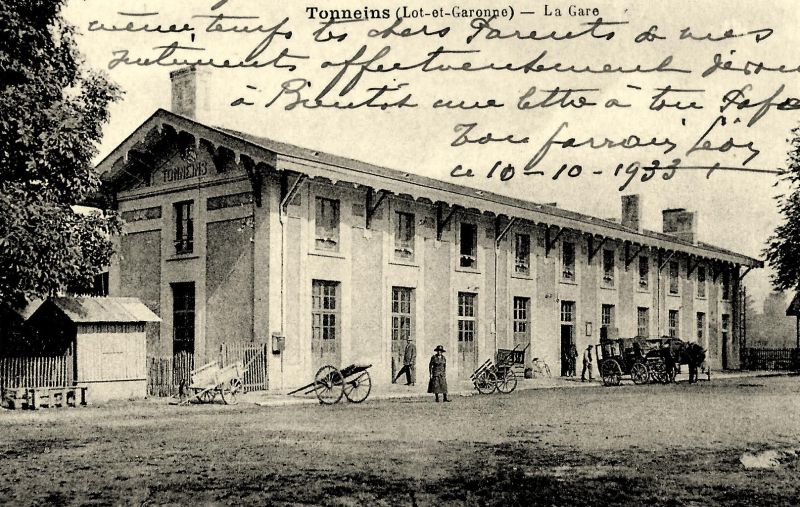 Tonneins (Lot-et-Garonne) — La Gare
même temps tes chers Parents de mes
sentiments affectueusement dévoués
à Bientôt une lettre à ton
Ton parrain Léon
ce 10-10-1933
TONNEINS